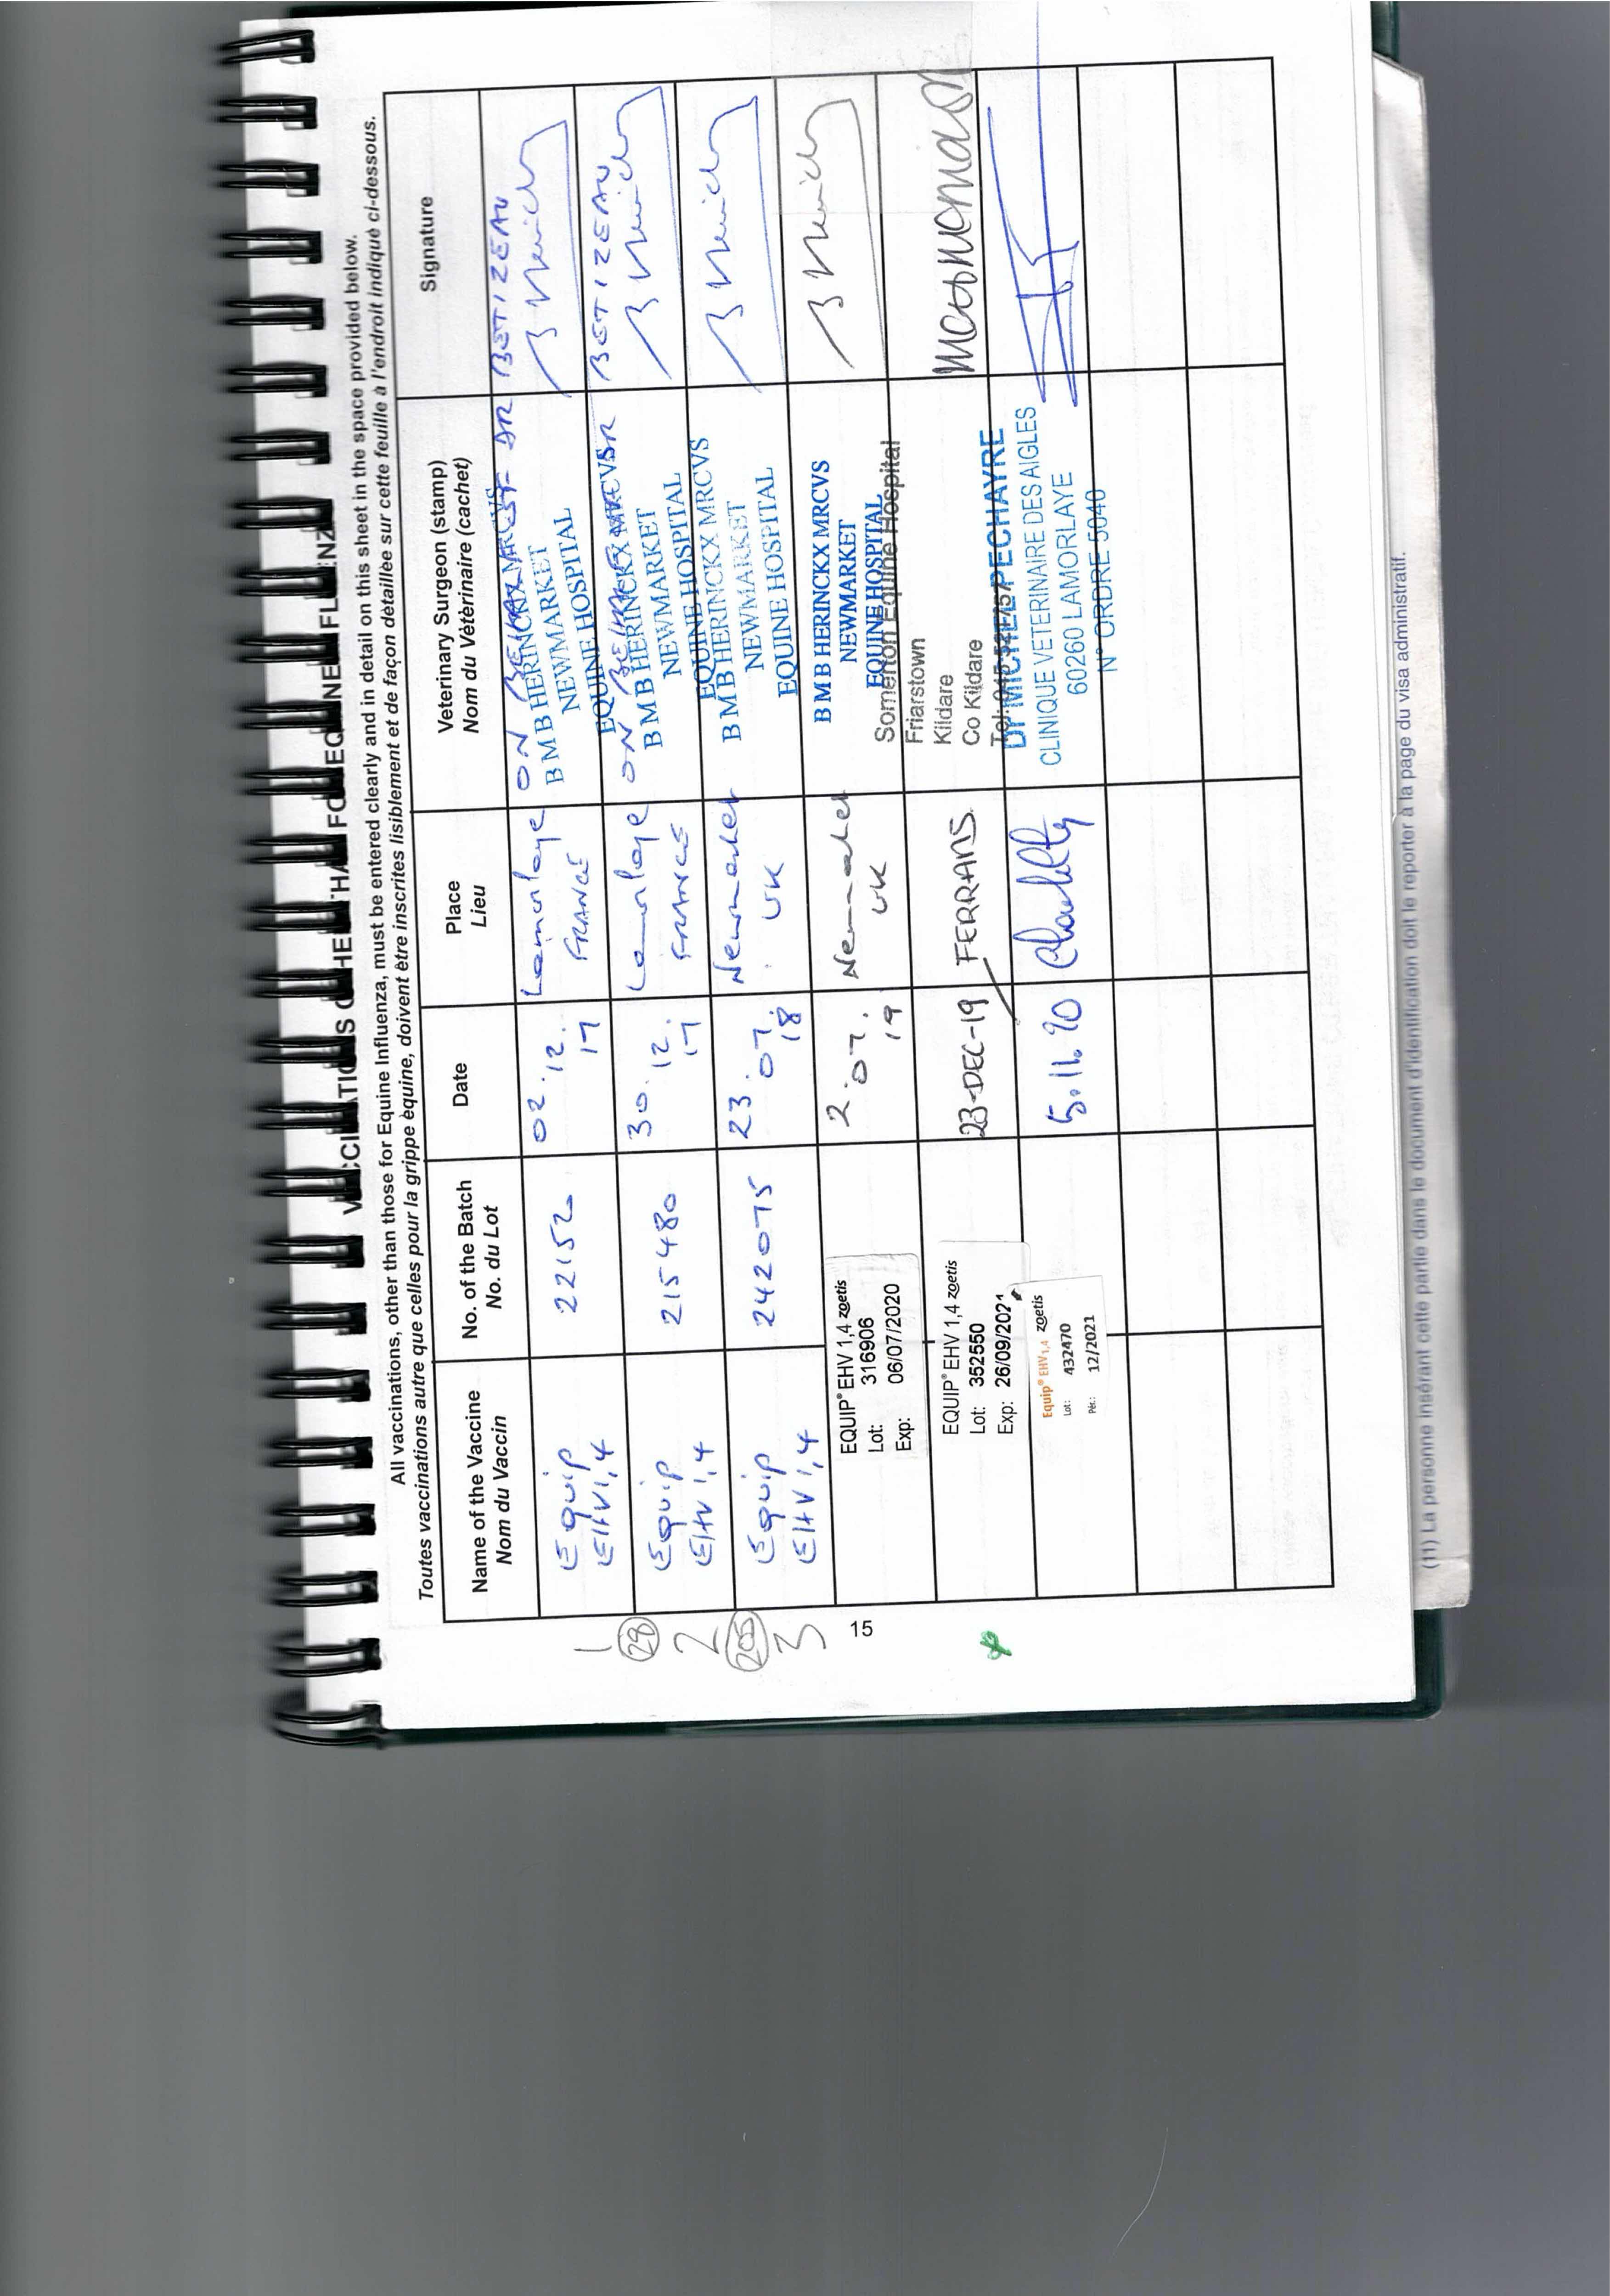 VACCINATIONS OTHER THAN FOR EQUINE INFLUENZA
All vaccinations, other than those for Equine Influenza, must be entered clearly and in detail on this sheet in the space provided below.
Toutes vaccinations autre que celles pour la grippe équine, doivent être inscrites lisiblement et de façon détaillée sur cette feuille à l'endroit indiqué ci-dessous.
Name of the Vaccine
Nom du Vaccin
No. of the Batch
No. du Lot
Date
Place
Lieu
Veterinary Surgeon (stamp)
Nom du Vétérinaire (cachet)
Signature
1
Equip
EHV 1,4
22152
02.12.
17
Lamorlaye
FRANCE
ON BEHALF OF DR BETIZEAU
B M B HERINCKX MRCVS
NEWMARKET
EQUINE HOSPITAL
28
2
Equip
EHV 1,4
215480
30.12.
17
Lamorlaye
FRANCE
ON BEHALF OF DR BETIZEAU
B M B HERINCKX MRCVS
NEWMARKET
EQUINE HOSPITAL
205
3
Equip
EHV 1,4
242075
23.07.
18
Newmarket
UK
B M B HERINCKX MRCVS
NEWMARKET
EQUINE HOSPITAL
EQUIP® EHV 1,4 zoetis
Lot: 316906
Exp: 06/07/2020
2.07.
19
Newmarket
UK
B M B HERINCKX MRCVS
NEWMARKET
EQUINE HOSPITAL
EQUIP® EHV 1,4 zoetis
Lot: 352550
Exp: 26/09/2021
23-DEC-19
FERRANS
Somerton Equine Hospital
Friarstown
Kildare
Co Kildare
Equip® EHV 1,4 zoetis
Lot: 432470
Pér.: 12/2021
5.11.20
Chantilly
Dr MICHEL PECHAYRE
CLINIQUE VETERINAIRE DES AIGLES
60260 LAMORLAYE
N° ORDRE 5040
15
(11) La personne insérant cette partie dans le document d'identification doit le reporter à la page du visa administratif.